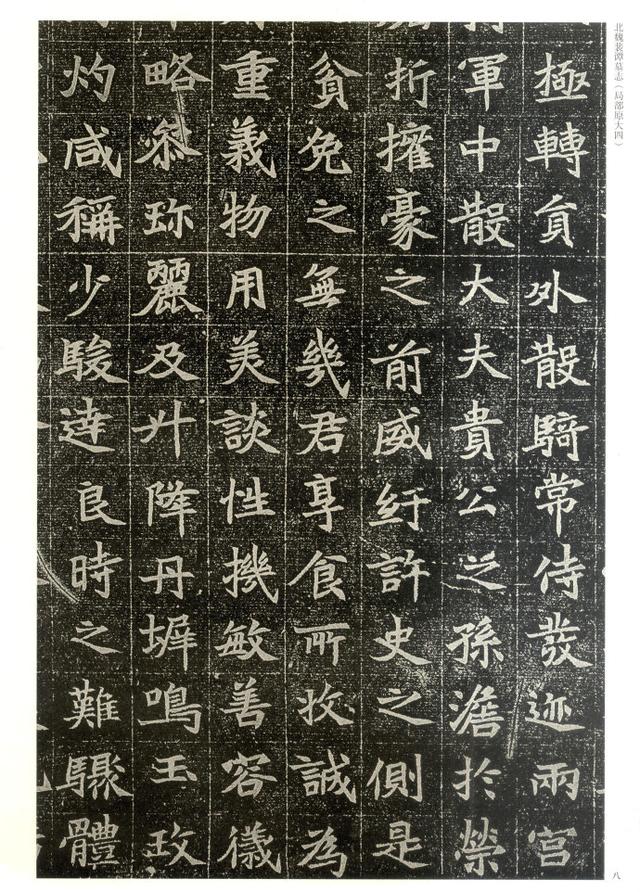 北魏裴谭墓志（局部原大四）
極轉貟外散騎常侍發迹兩宫
軍中散大夫貴公之孫澹於榮
折擢豪之前威紆許史之側是
貧免之無幾君享食所收誠為
重義物用美談性機敏善容儀
略叅珎麗及升降丹墀鳴玉政
灼咸稱少駿達良時之難驟體
八